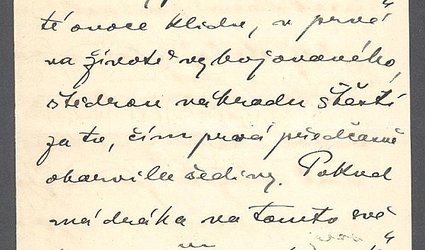 té ovoce klidu, v prvé
na životě vybojovaného,
štědrou náhradu štěstí
za to, čím prvá předčasně
obarvila šediny. Pokud
má dráha na tomto svě